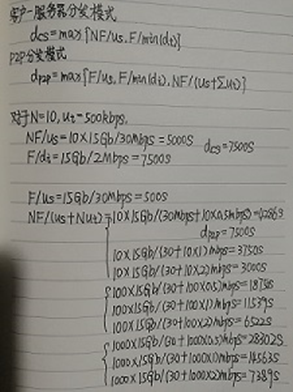 客户-服务器分发模式
dcs=max{NF/us, F/min(dt)}
P2P分发模式
dp2p=max{F/us, F/min(dt), NF/(us+Σut)}
对于N=10, ut=500kbps,
NF/us=10×15Gb/30Mbps=5000S dcs=7500S
F/dt=15Gb/2Mbps=7500S
F/us=15Gb/30Mbps=500S
NF/(us+Nut)=10×15Gb/(30mbps+10×0.5mbps)=4286S
dp2p=7500S
10×15Gb/(30+10×1)mbps=3750S
10×15Gb/(30+10×2)mbps=3000S
100×15Gb/(30+100×0.5)mbps=18750S
100×15Gb/(30+100×1)mbps=11539S
100×15Gb/(30+100×2)mbps=6522S
1000×15Gb/(30+1000×0.5)mbps=28302S
1000×15Gb/(30+1000×1)mbps=14563S
1000×15Gb/(30+1000×2)mbps=7389S